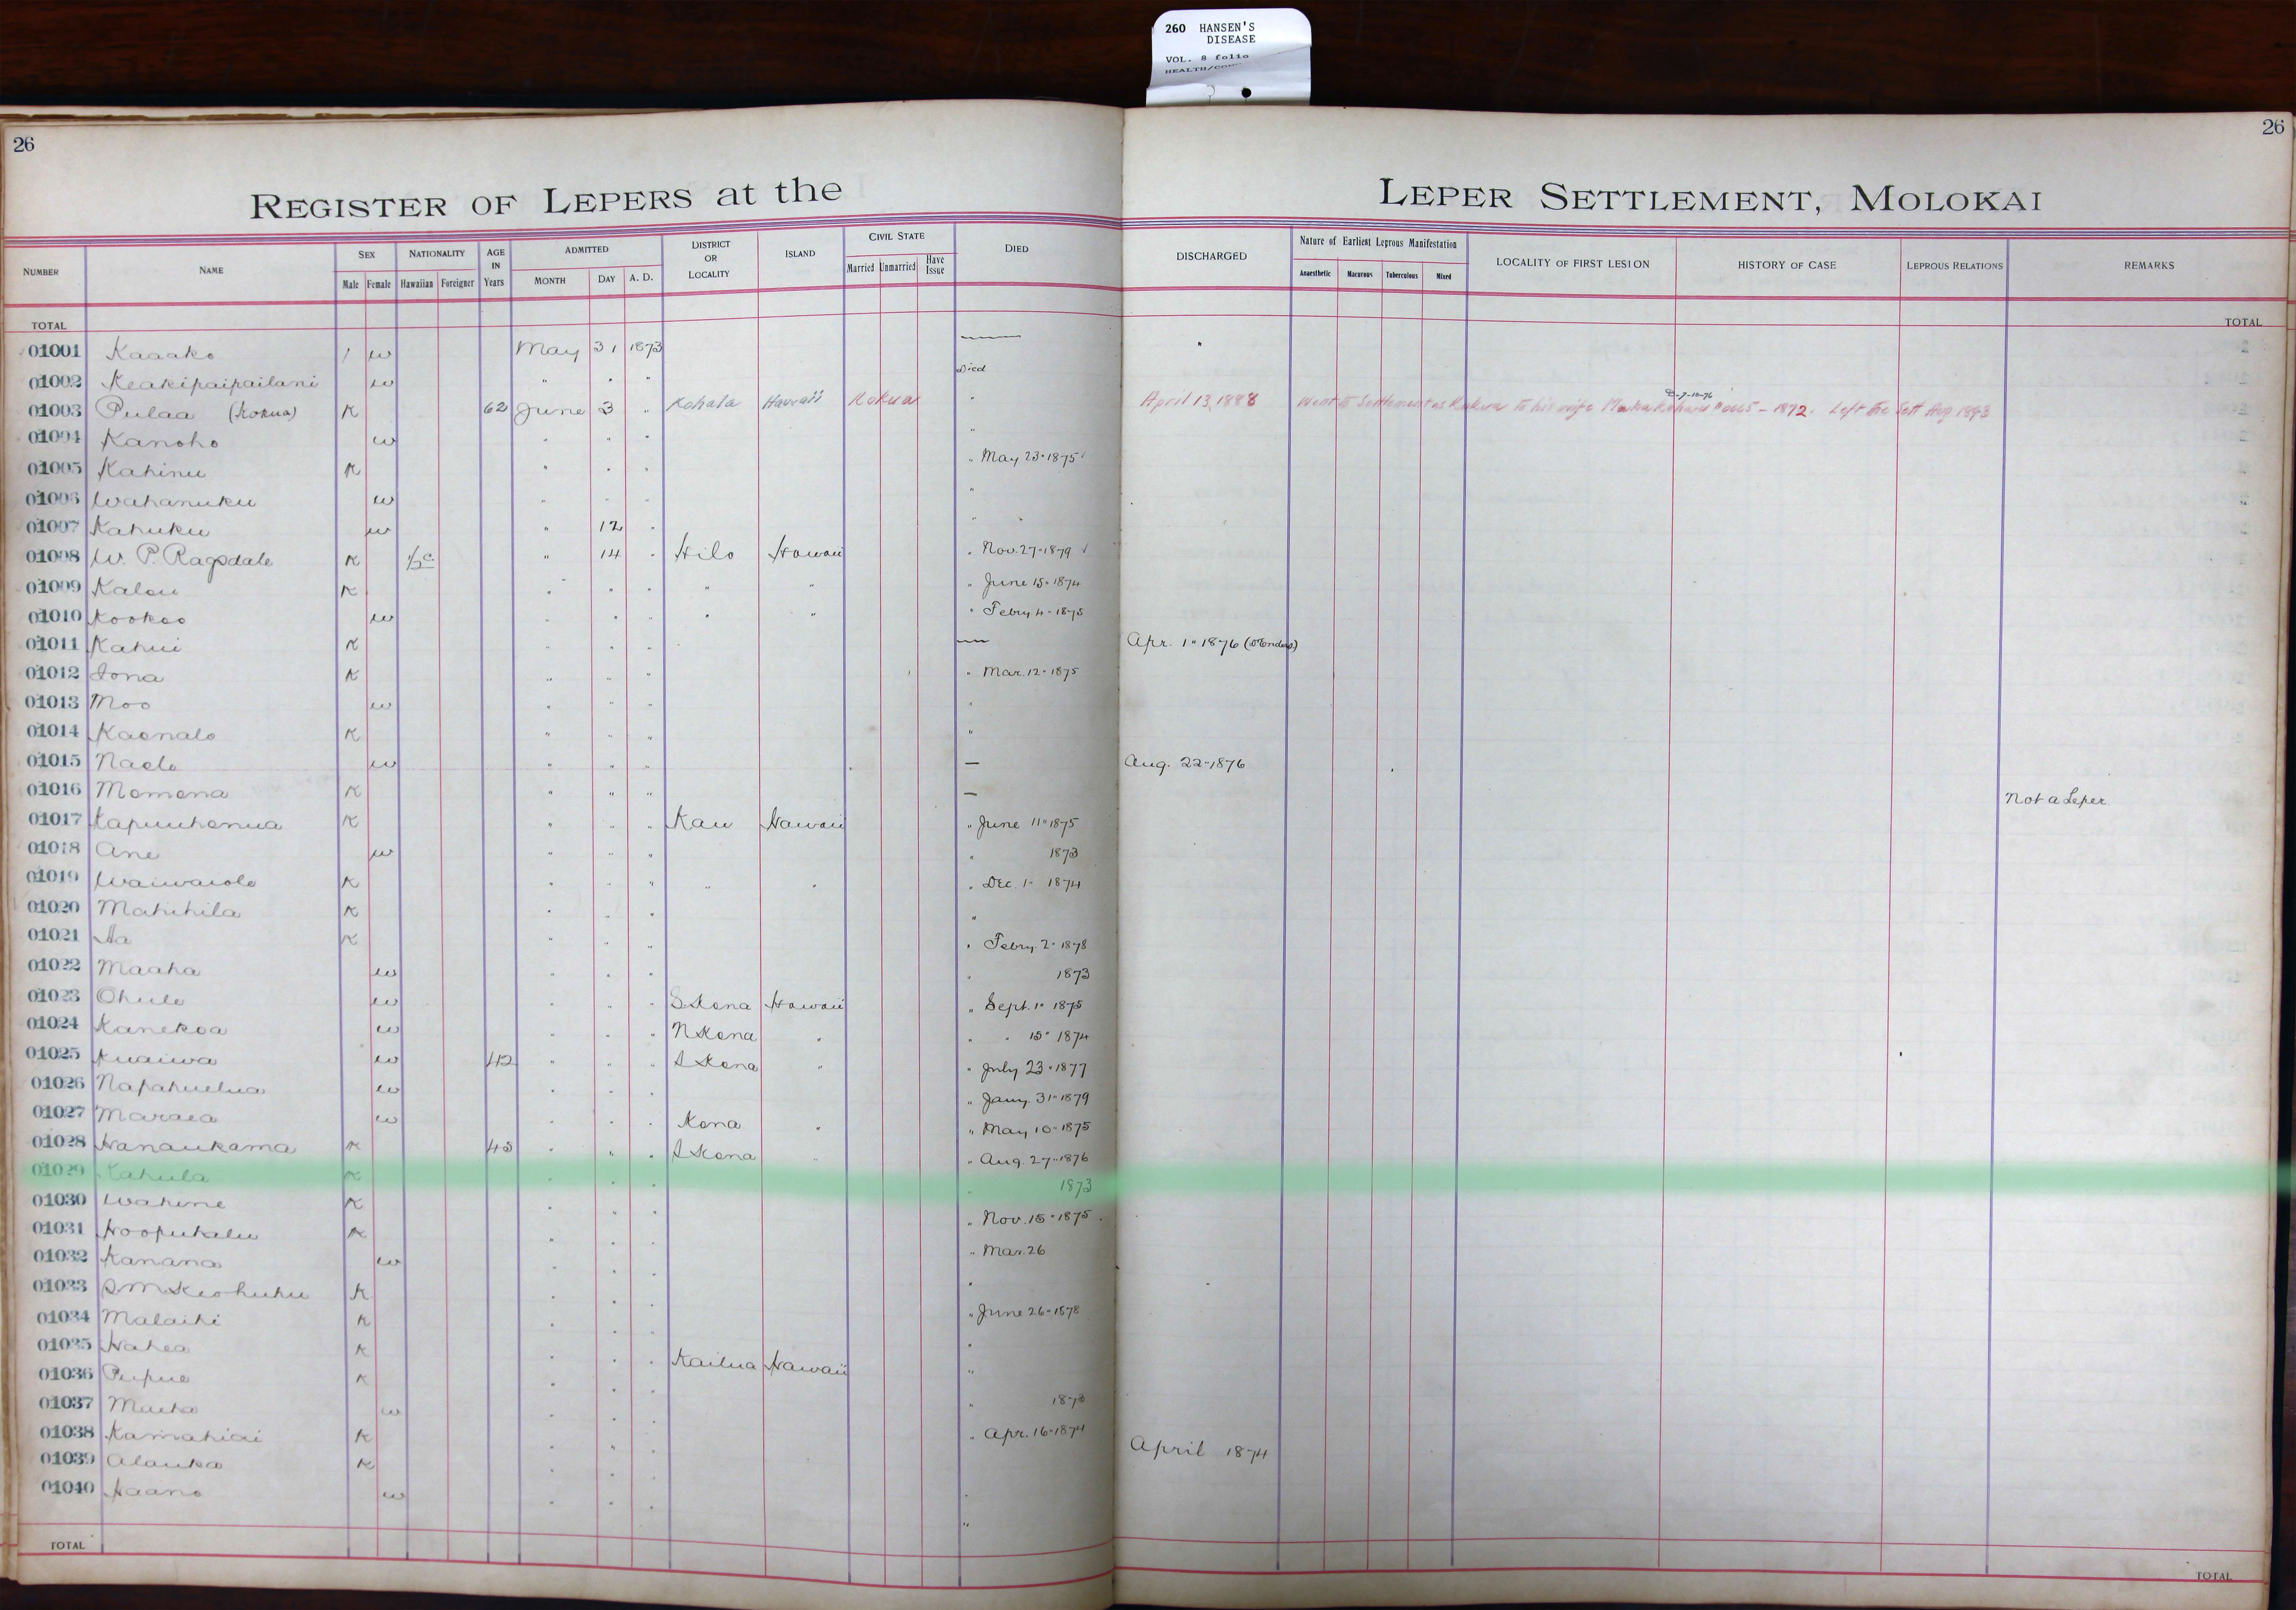 260 HANSEN'S
DISEASE
VOL. 8 folio
26
26
REGISTER OF LEPERS at the LEPER SETTLEMENT, MOLOKAI
NUMBER NAME SEX NATIONALITY AGE IN Years ADMITTED DISTRICT OR LOCALITY ISLAND CIVIL STATE DIED DISCHARGED Nature of Earliest Leprous Manifestation LOCALITY OF FIRST LESION HISTORY OF CASE LEPROUS RELATIONS REMARKS
Male Female Hawaiian Foreigner MONTH DAY A. D. Married Unmarried Have Issue Anaesthetic Macurous Tuberculous Mixed
TOTAL TOTAL
01001 Kaaako / w May 31 1873 "
01002 Keakipaipailani w " " " Died
01003 Pulaa (Kokua) K 62 June 3 " Kohala Hawaii Kokua " April 13, 1888 Went to Settlement as Kokua to his wife 1872. Left the Sett Aug 1893
01004 Kanoho w " " " "
01005 Kahinu K " " " " May 23 " 1875
01006 Wahanuku w " " " "
01007 Kahuku w " 12 " "
01008 W. P. Ragsdale K ½ c " 14 " Hilo Hawaii " Nov. 27 " 1879
01009 Kalou K " " " " " " June 15 " 1874
01010 Kookoo w " " " " " " Febry. 4 - 1875
01011 Kahui K " " " Apr. 1 " 1876
01012 Iona K " " " " Mar. 12 " 1875
01013 Moo w " " " "
01014 Kaonalo K " " " "
01015 Naelo w " " " — Aug. 22 - 1876
01016 Momona K " " " — Not a Leper
01017 Kapuuhonua K " " " Kau Hawaii " June 11 " 1875
01018 Ane w " " " " 1873
01019 Waiwaiole K " " " " " " Dec. 1 " 1874
01020 Mahihila K " " " "
01021 Aa K " " " " Febry. 2 " 1878
01022 Maaha w " " " " 1873
01023 Ohule w " " " S Kona Hawaii " Sept. 1 " 1875
01024 Kanekoa w " " " N Kona " " " 15 " 1874
01025 Kuaiwa w 42 " " " S Kona " " July 23 " 1877
01026 Napahuelua w " " " " Jany. 31 " 1879
01027 Maraea w " " " Kona " " May 10 " 1875
01028 Hanaukama K 45 " " " S Kona " " Aug. 27 " 1876
01029 Kahula K " " " " 1873
01030 Wahine K " " " " Nov. 15 " 1875
01031 Hoopukalu K " " " " Mar. 26
01032 Kanana w " " " "
01033 S M Keohuhu K " " " " June 26 " 1878
01034 Malaihi K " " " "
01035 Hahea K " " " Kailua Hawaii "
01036 Pupue K " " " " 1873
01037 Maeha w " " " " Apr. 16 " 1874
01038 Kamahiai K " " " April 1874
01039 Alauka K " " " "
01040 Haano w " " " "
TOTAL TOTAL